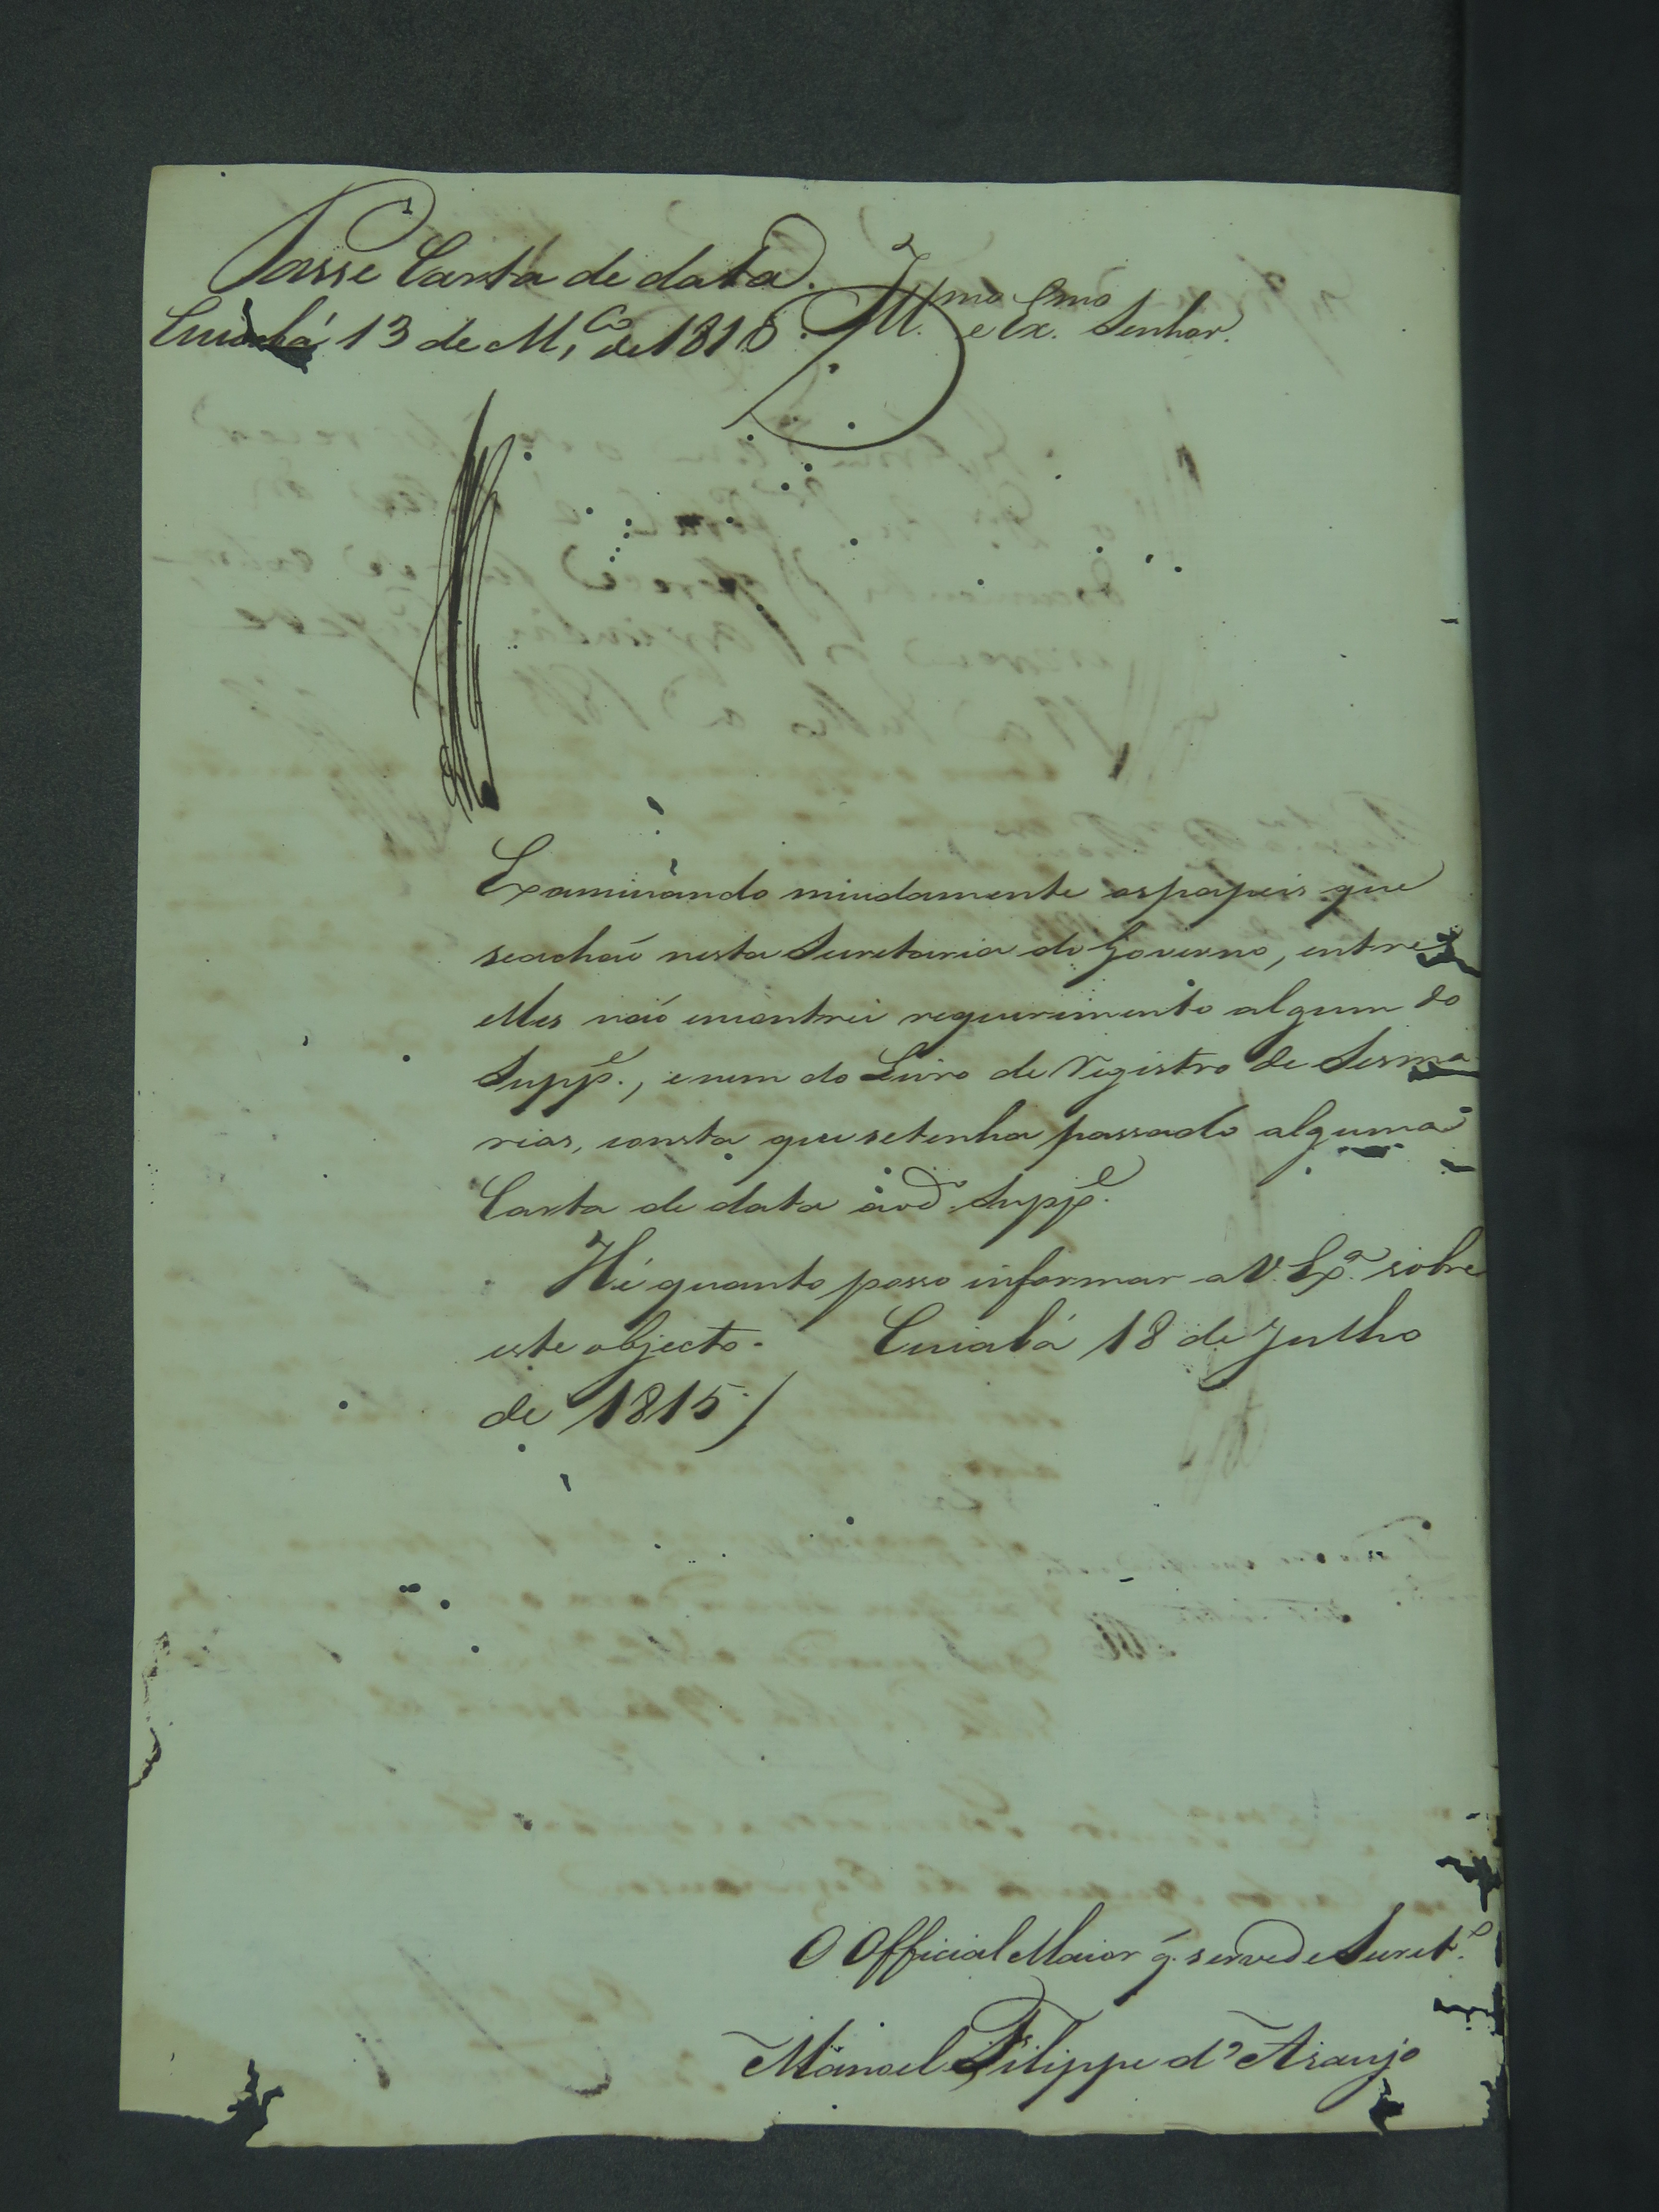 Passe Carta de data.
Cuiabá 13 de M.ço de 1816.
Ill.mo e Ex.mo Senhor.
Examinando miudamente os papeis que
seachaõ nesta Secretaria do Governo, entre
elles naõ encontrei requerimento algum do
Supp.e, e nem do Livro de Registro de Sesma
rias, consta que setenha passado alguma
Carta de data aod.o Supp.e
Hé quanto posso informar a V. Ex.a sobre
este objecto. Cuiabá 18 de Julho
de 1815/
O Official Maior q̃. servede Secret.o
Manoel Filippe d'Araujo